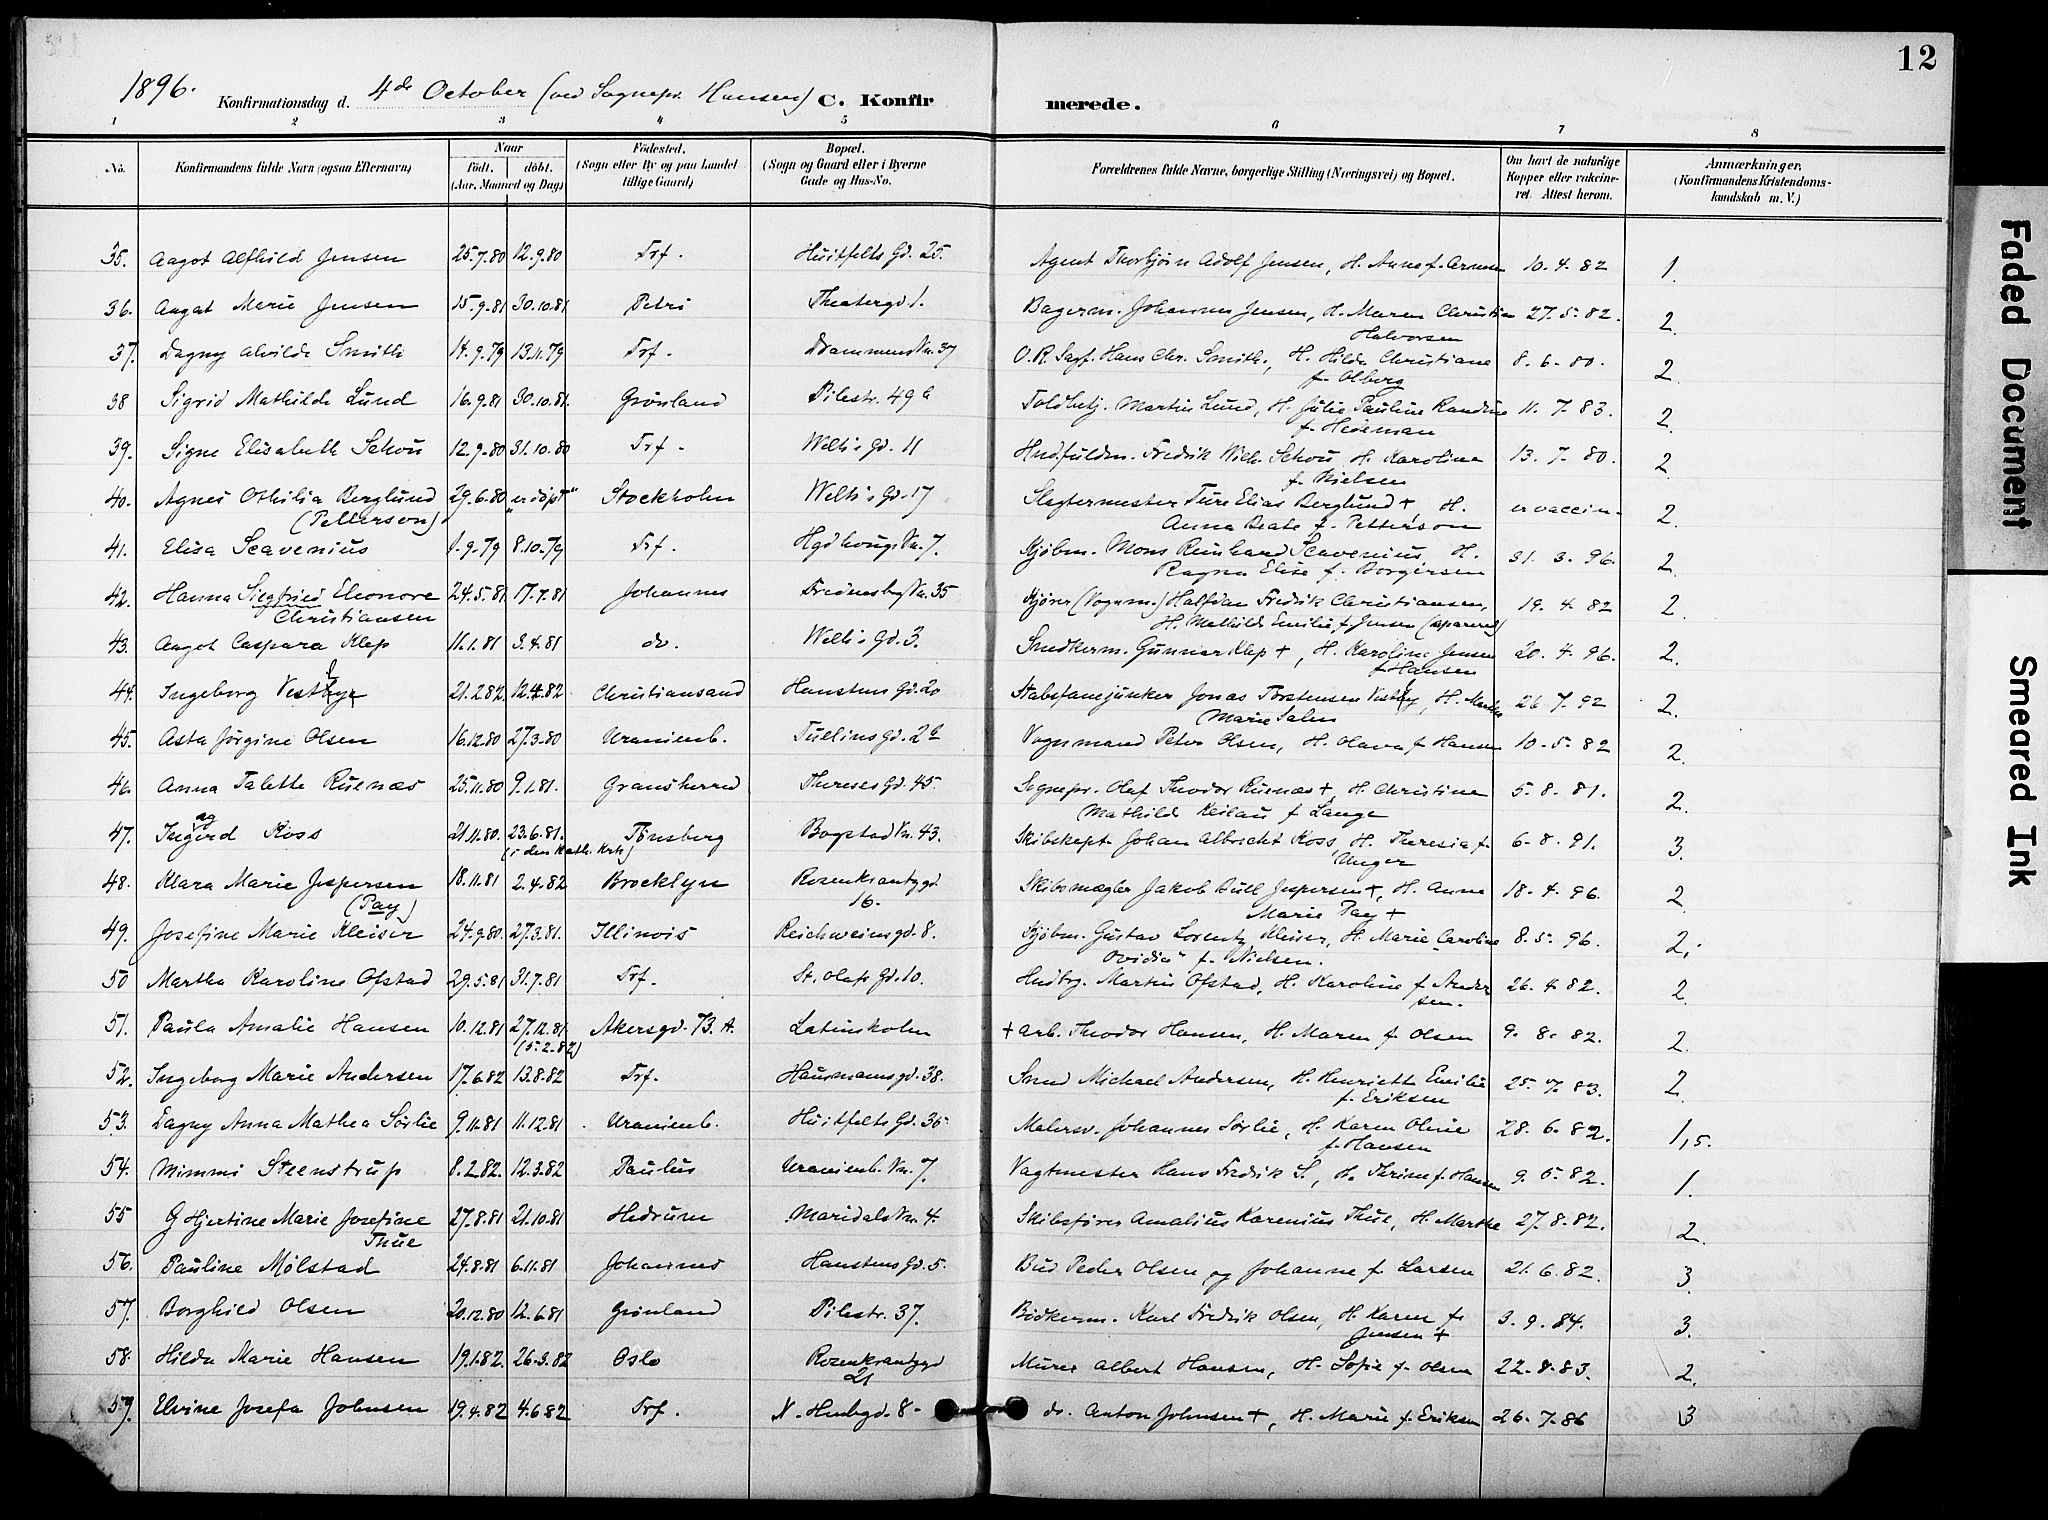 12
1896. Konfirmationsdag d. 4de October (ved Sognepr. Hansen) C. Konfirmerede.
1 2 3 4 5 6 7 8
No. Konfirmandens fulde Navn (ogsaa Efternavn) Naar födt. döbt. (Aar, Maaned og Dag) Födested. (Sogn eller By og paa Landet tillige Gaard) Bopæl. (Sogn og Gaard eller i Byerne Gade og Hus-No. Forældrenes fulde Navne, borgerlige Stilling (Næringsvei) og Bopæl. Om havt de naturlige Kopper eller vakcineret. Attest herom. Anmærkninger. (Konfirmandens Kristendomskundskab m. V.)
35. Aagot Alfhild Jensen 25.7.80 12.9.80 Trf. Huitfelts Gd. 25. Agent Thorbjørn Adolf Jensen, H. Anna f. Arnesen 10.4.82 1.
36. Aagot Marie Jensen 15.9.81 30.10.81 Petri Theatergd 1. Bagerm. Johannes Jensen, H. Maren Christine 27.5.82. 2.
Halvorsen
37. Dagny Alvilde Smith 14.9.79 13.11.79 Trf. Drammensvn. 37 O.R. Sagf. Hans Chr. Smith., H. Hilda Christiane 8.6.80. 2.
f. Olberg
38 Sigrid Mathilde Lund 16.9.81 30.10.81. Grønland Pilestr. 49 b Toldbetj. Martin Lund, H. Julie Pauline Randine 11.7.83. 2.
f. Hedeman
39. Signe Elisabeth Schou 12.9.80 31.10.80 Trf. Welhs Gd. 11 Hudfuldm. Fredrik Wilh. Schou, H. Karoline 13.7.80. 2.
f. Nielsen
40. Agnes Othilia Berglund 29.6.80 "er döpt" Stockholm Welhs Gd. 17 Slagtermester Ture Elias Berglund +, H. er vaccin. 2.
(Petterson) Anna Beate f. Petterson
41. Elisa Scavenius 1.9.79 8.10.79 Trf. Hgdhougs Vn. 7. Kjøbm. Mons Reinhard Scavenius, H. 31.3.96. 2.
Ragna Elise f. Borgersen
42. Hanna Siegfried Eleonore 24.5.81 17.7.81 Johannes Fredensbg Vn. 35 Kjører (Vognm.) Halfdan Fredrik Christiansen, 19.4.82 2.
Christiansen H. Mathilde Emilie f. Jensen (separered)
43. Aagot Caspara Klep 11.1.81 3.4.81 do. Welhs Gd. 3. Snedkerm. Gunnar Klep +, H. Karoline Jensen 20.4.96. 2.
f. Hansen
44. Ingeborg Vestbye 21.2.82. 12.4.82 Christiansand Hanstens Gd. 20 Stabsfanejunker Jonas Torstensen Vestby, H. Martha 26.7.92 2.
Marie Salen
45. Asta Jørgine Olsen 16.12.80 27.3.80 Uranienb. Tullins Gd. 2 a Vognmand Peter Olsen, H. Olava f. Hansen 10.5.82 2.
46. Anna Talette Rusnæs 25.11.80 9.1.81. Gransherred Thereses Gd. 45. Sognepr. Olaf Theodor Rusnæs +, H. Christine 5.8.81. 2.
Mathilde Keilau f. Lange
47. Ingerd Koss 21.11.80. 23.6.81. Tønsberg Bogstad Vn. 43. Skibskapt. Johan Albrecht Koss, H. Theresia f. 6.8.91. 3.
ag (i den kath. Krk) Unger
48. Klara Marie Jespersen 18.11.81 2.4.82 Brocklyn Rosenkrantzgd. Skibsmægler Jakob Bull Jespersen +, H. Anne 18.4.96. 2.
(Pay) 16. Marie Pay +
49. Josefine Marie Kleiser 24.9.80. 27.3.81. Illinois Reichweinsgd. 8. Kjøbm. Gustav Lorentz Kleiser, H. Marie Caroline 8.5.96. 2.
Ovidia f. Nielsen.
50 Martha Karoline Ofstad 29.5.81 31.7.81 Trf. St. Olafs Gd. 10. Hndbrg. Martin Ofstad, H. Karoline f. Ander 26.4.82. 2.
sen.
51. Paula Amalie Hansen 10.12.81 27.12.81 Akersgd. 73. A. Latinskolen + arb. Theodor Hansen, H. Maren f. Olsen 9.8.82. 2.
(5.2.82)
52. Ingeborg Marie Andersen 17.6.82 13.8.82 Trf. Hausmansgd. 38. Smed Michael Andersen, H. Henriette Emilie 25.7.83. 2.
f. Eriksen
53. Dagny Anna Mathea Sørlie 9.11.81 11.12.81 Uranienb. Huitfelts Gd. 36 Malersv. Johannes Sørlie, H. Karen Oline 28.6.82. 1,5.
f. Hansen
54. Mimmi Steenstrup 8.2.82. 12.3.82 Paulus Uranienb. Vn. 7. Vagtmester Hans Fredrik S., H. Thrine f. Hansen 9.5.82. 1.
55 G Hjertine Marie Josefine 27.8.81 21.10.81 Hedrum Maridals Vn. 4. Skibsfører Amalius Karenius Thue, H. Marthe 27.8.82. 2.
Thue
56. Pauline Mølstad 24.8.81 6.11.81 Johannes Hanstens Gd. 5. Bud Peder Olsen og Johanne f. Larsen 21.6.82. 3.
57. Borghild Olsen 20.12.80 12.6.81 Grønland Pilestr. 37. Bødkerm. Karl Fredrik Olsen, H. Karen f. 3.9.84. 3.
Jensen +
58. Hilda Marie Hansen 19.1.82. 26.3.82 Oslo Rozenkrantzgd Murer Albert Hansen, H. Sofie f. Olsen 22.8.83. 2.
21
59. Elvine Josefa Johnsen 19.4.82 4.6.82 Trf. N. 8. do. Anton Johnsen +, H. Marie f. Eriksen 26.7.86 3
Faded Document
Smeared Ink